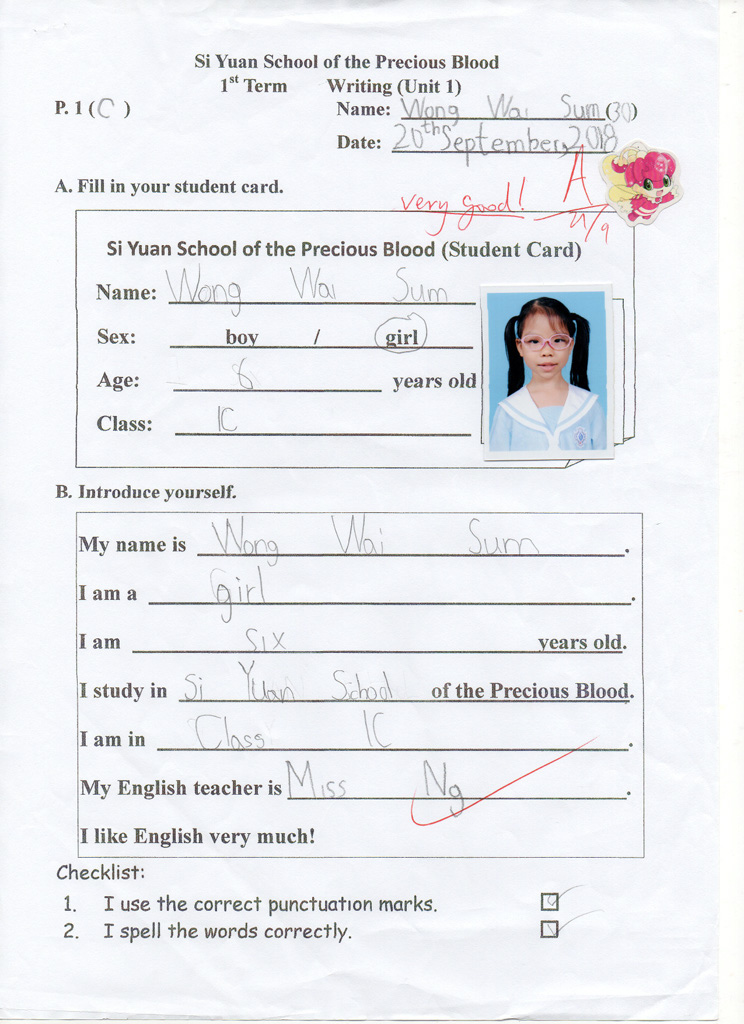 Si Yuan School of the Precious Blood
1st Term Writing (Unit 1)
P. 1 (C) Name: Wong Wai Sum (30)
Date: 20th September, 2018
A. Fill in your student card.
very good! A
21/9
Si Yuan School of the Precious Blood (Student Card)
Name: Wong Wai Sum
Sex: boy / girl
Age: 6 years old
Class: 1C
B. Introduce yourself.
My name is Wong Wai Sum.
I am a girl.
I am six years old.
I study in Si Yuan School of the Precious Blood.
I am in Class 1C.
My English teacher is Miss Ng.
I like English very much!
Checklist:
1. I use the correct punctuation marks.
2. I spell the words correctly.